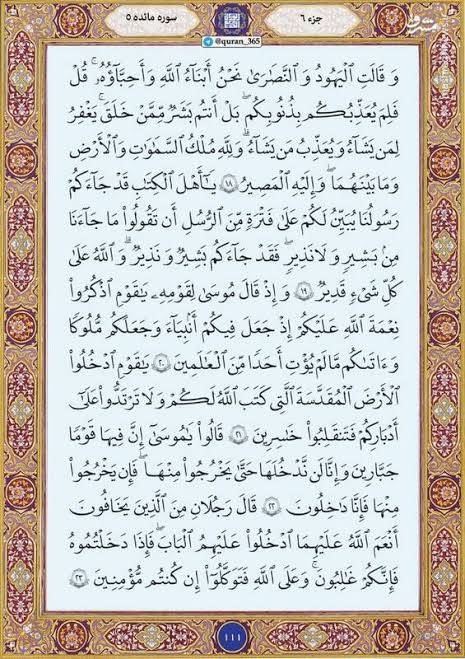 جزء ۶
@quran_365
سوره مائده ۵
وَ قَالَتِ الْيَهُودُ وَ النَّصَارَىٰ نَحْنُ أَبْنَاءُ اللَّهِ وَ أَحِبَّاؤُهُ ۚ قُلْ
فَلِمَ يُعَذِّبُكُم بِذُنُوبِكُم ۖ بَلْ أَنتُم بَشَرٌ مِّمَّنْ خَلَقَ ۚ يَغْفِرُ
لِمَن يَشَاءُ وَ يُعَذِّبُ مَن يَشَاءُ ۚ وَ لِلَّهِ مُلْكُ السَّمَاوَاتِ وَ الْأَرْضِ
وَ مَا بَيْنَهُمَا ۖ وَ إِلَيْهِ الْمَصِيرُ ۱۸ يَا أَهْلَ الْكِتَابِ قَدْ جَاءَكُمْ
رَسُولُنَا يُبَيِّنُ لَكُمْ عَلَىٰ فَتْرَةٍ مِّنَ الرُّسُلِ أَن تَقُولُوا مَا جَاءَنَا
مِن بَشِيرٍ وَ لَا نَذِيرٍ ۖ فَقَدْ جَاءَكُم بَشِيرٌ وَ نَذِيرٌ ۗ وَ اللَّهُ عَلَىٰ
كُلِّ شَيْءٍ قَدِيرٌ ۱۹ وَ إِذْ قَالَ مُوسَىٰ لِقَوْمِهِ يَا قَوْمِ اذْكُرُوا
نِعْمَةَ اللَّهِ عَلَيْكُمْ إِذْ جَعَلَ فِيكُمْ أَنبِيَاءَ وَ جَعَلَكُم مُّلُوكًا
وَ آتَاكُم مَّا لَمْ يُؤْتِ أَحَدًا مِّنَ الْعَالَمِينَ ۲۰ يَا قَوْمِ ادْخُلُوا
الْأَرْضَ الْمُقَدَّسَةَ الَّتِي كَتَبَ اللَّهُ لَكُمْ وَ لَا تَرْتَدُّوا عَلَىٰ
أَدْبَارِكُمْ فَتَنقَلِبُوا خَاسِرِينَ ۲۱ قَالُوا يَا مُوسَىٰ إِنَّ فِيهَا قَوْمًا
جَبَّارِينَ وَ إِنَّا لَن نَّدْخُلَهَا حَتَّىٰ يَخْرُجُوا مِنْهَا ۖ فَإِن يَخْرُجُوا
مِنْهَا فَإِنَّا دَاخِلُونَ ۲۲ قَالَ رَجُلَانِ مِنَ الَّذِينَ يَخَافُونَ
أَنْعَمَ اللَّهُ عَلَيْهِمَا ادْخُلُوا عَلَيْهِمُ الْبَابَ ۖ فَإِذَا دَخَلْتُمُوهُ
فَإِنَّكُمْ غَالِبُونَ ۚ وَ عَلَى اللَّهِ فَتَوَكَّلُوا إِن كُنتُم مُّؤْمِنِينَ ۲۳
۱۱۱